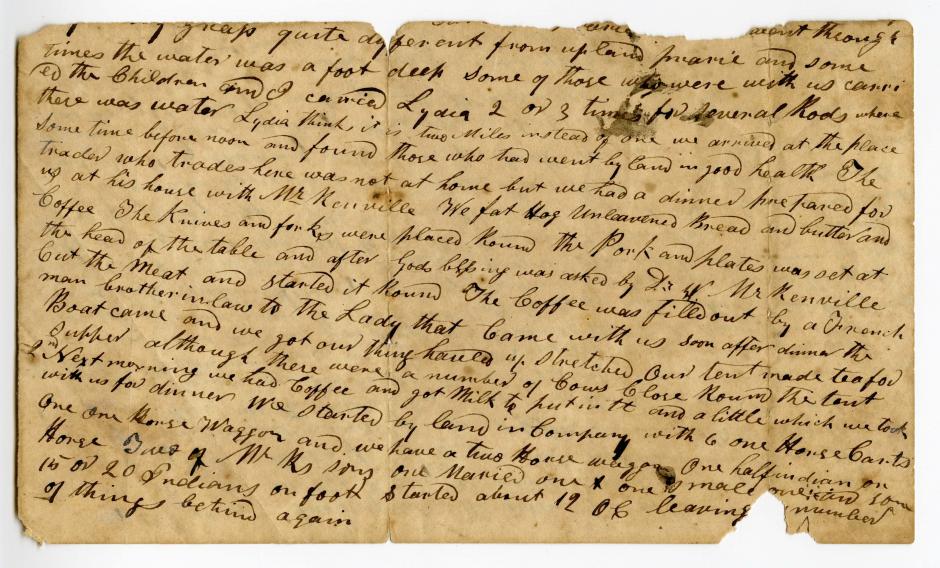 grass quite different from upland prarie and some
times the water was a foot deep some of those who were with us carri
ed the Children and I carried Lydia 2 or 3 times for several Rods where
there was water Lydia think it is two Miles instead of one we arrived at the place
some time before noon and found those who had went by land in good health The
trader who trades here was not at home but we had a dinner prepared for
us at his house with Mr Kenville We fat Hog Unleavened Bread and butter and
Coffee The Knives and forks were placed Round the Pork and plates was set at
the head of the table and after Gods blessing was asked by Dr W Mr Kenville
Cut the Meat and started it Round The Coffee was filled out by a French
man brother in law to the Lady that Came with us soon after dinner the
Boat came and we got our thing hauled up stretched Our tent made tea for
supper although there were a number of Cows Close Round the tent
Next morning we had Coffee and got Milk to put in it and a little which we took
with us for dinner We started by land in Company with 6 one Horse Carts
One one Horse Waggon and we have a two Horse waggon One half indian on
Horse Two of Mr Ks sons one Maried one & one small one and some
15 or 20 Indians on foot Started about 12 OC leaving number
of things behind again